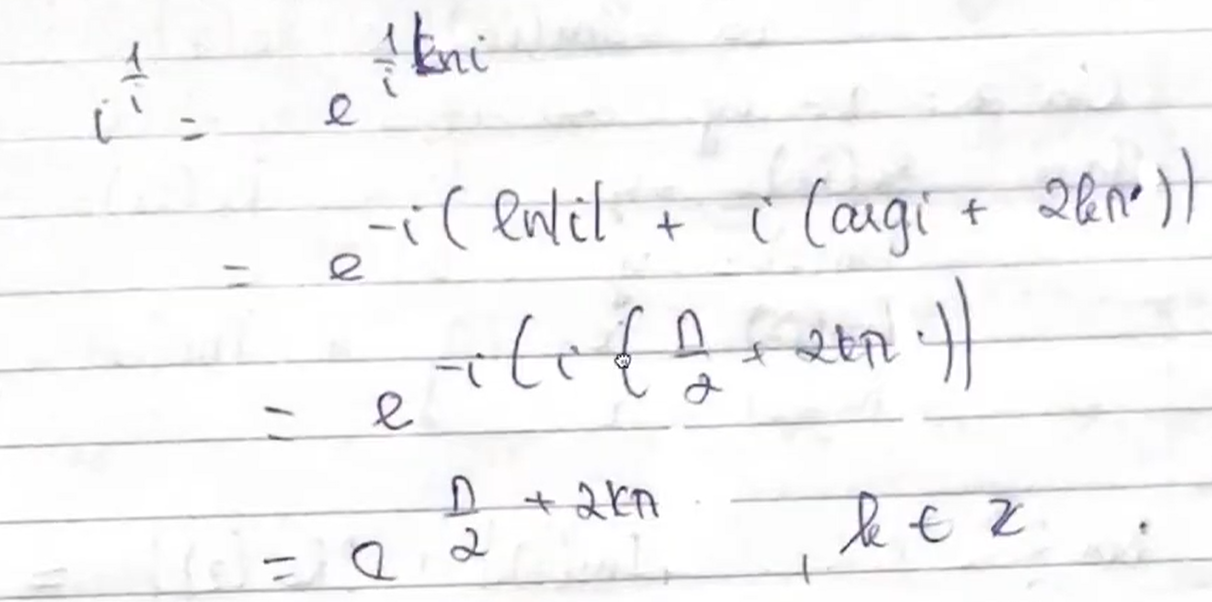 i^{1/i} = e^{1/i Lni}
= e^{-i(ln|i| + i(argi + 2kπ))}
= e^{-i(i(π/2 + 2kπ))}
= e^{π/2 + 2kπ} , k ∈ Z.